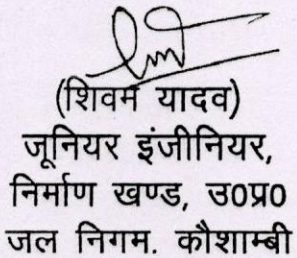 (शिवम यादव)
जूनियर इंजीनियर,
निर्माण खण्ड, उ0प्र0
जल निगम. कौशाम्बी